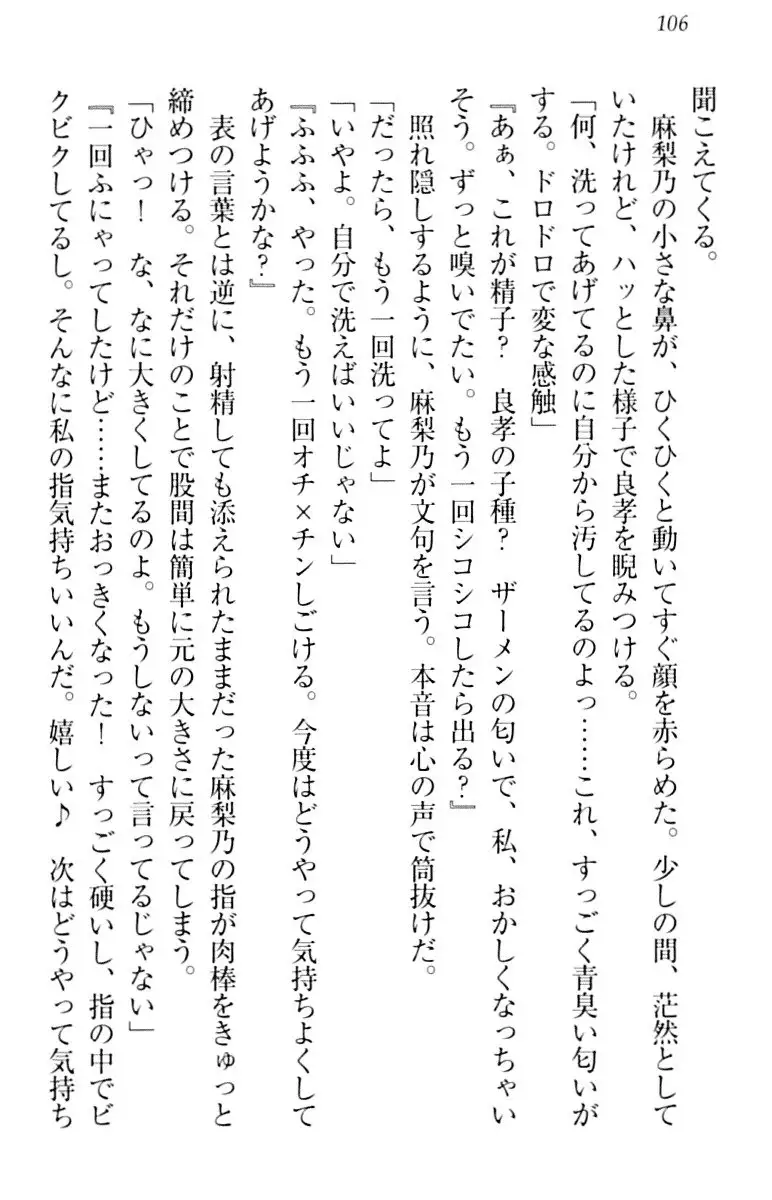 106
聞こえてくる。
　麻梨乃の小さな鼻が、ひくひくと動いてすぐ顔を赤らめた。少しの間、茫然として
いたけれど、ハッとした様子で良孝を睨みつける。
「何、洗ってあげてるのに自分から汚してるのよっ……これ、すっごく青臭い匂いが
する。ドロドロで変な感触」
『あぁ、これが精子？　良孝の子種？　ザーメンの匂いで、私、おかしくなっちゃい
そう。ずっと嗅いでたい。もう一回シコシコしたら出る？』
　照れ隠しするように、麻梨乃が文句を言う。本音は心の声で筒抜けだ。
「だったら、もう一回洗ってよ」
「いやよ。自分で洗えばいいじゃない」
『ふふふ、やった。もう一回オチ×チンしごける。今度はどうやって気持ちよくして
あげようかな？』
　表の言葉とは逆に、射精しても添えられたままだった麻梨乃の指が肉棒をきゅっと
締めつける。それだけのことで股間は簡単に元の大きさに戻ってしまう。
「ひゃっ！　な、なに大きくしてるのよ。もうしないって言ってるじゃない」
『一回ふにゃってしたけど……またおっきくなった！　すっごく硬いし、指の中でビ
クビクしてるし。そんなに私の指気持ちいいんだ。嬉しい♪　次はどうやって気持ち